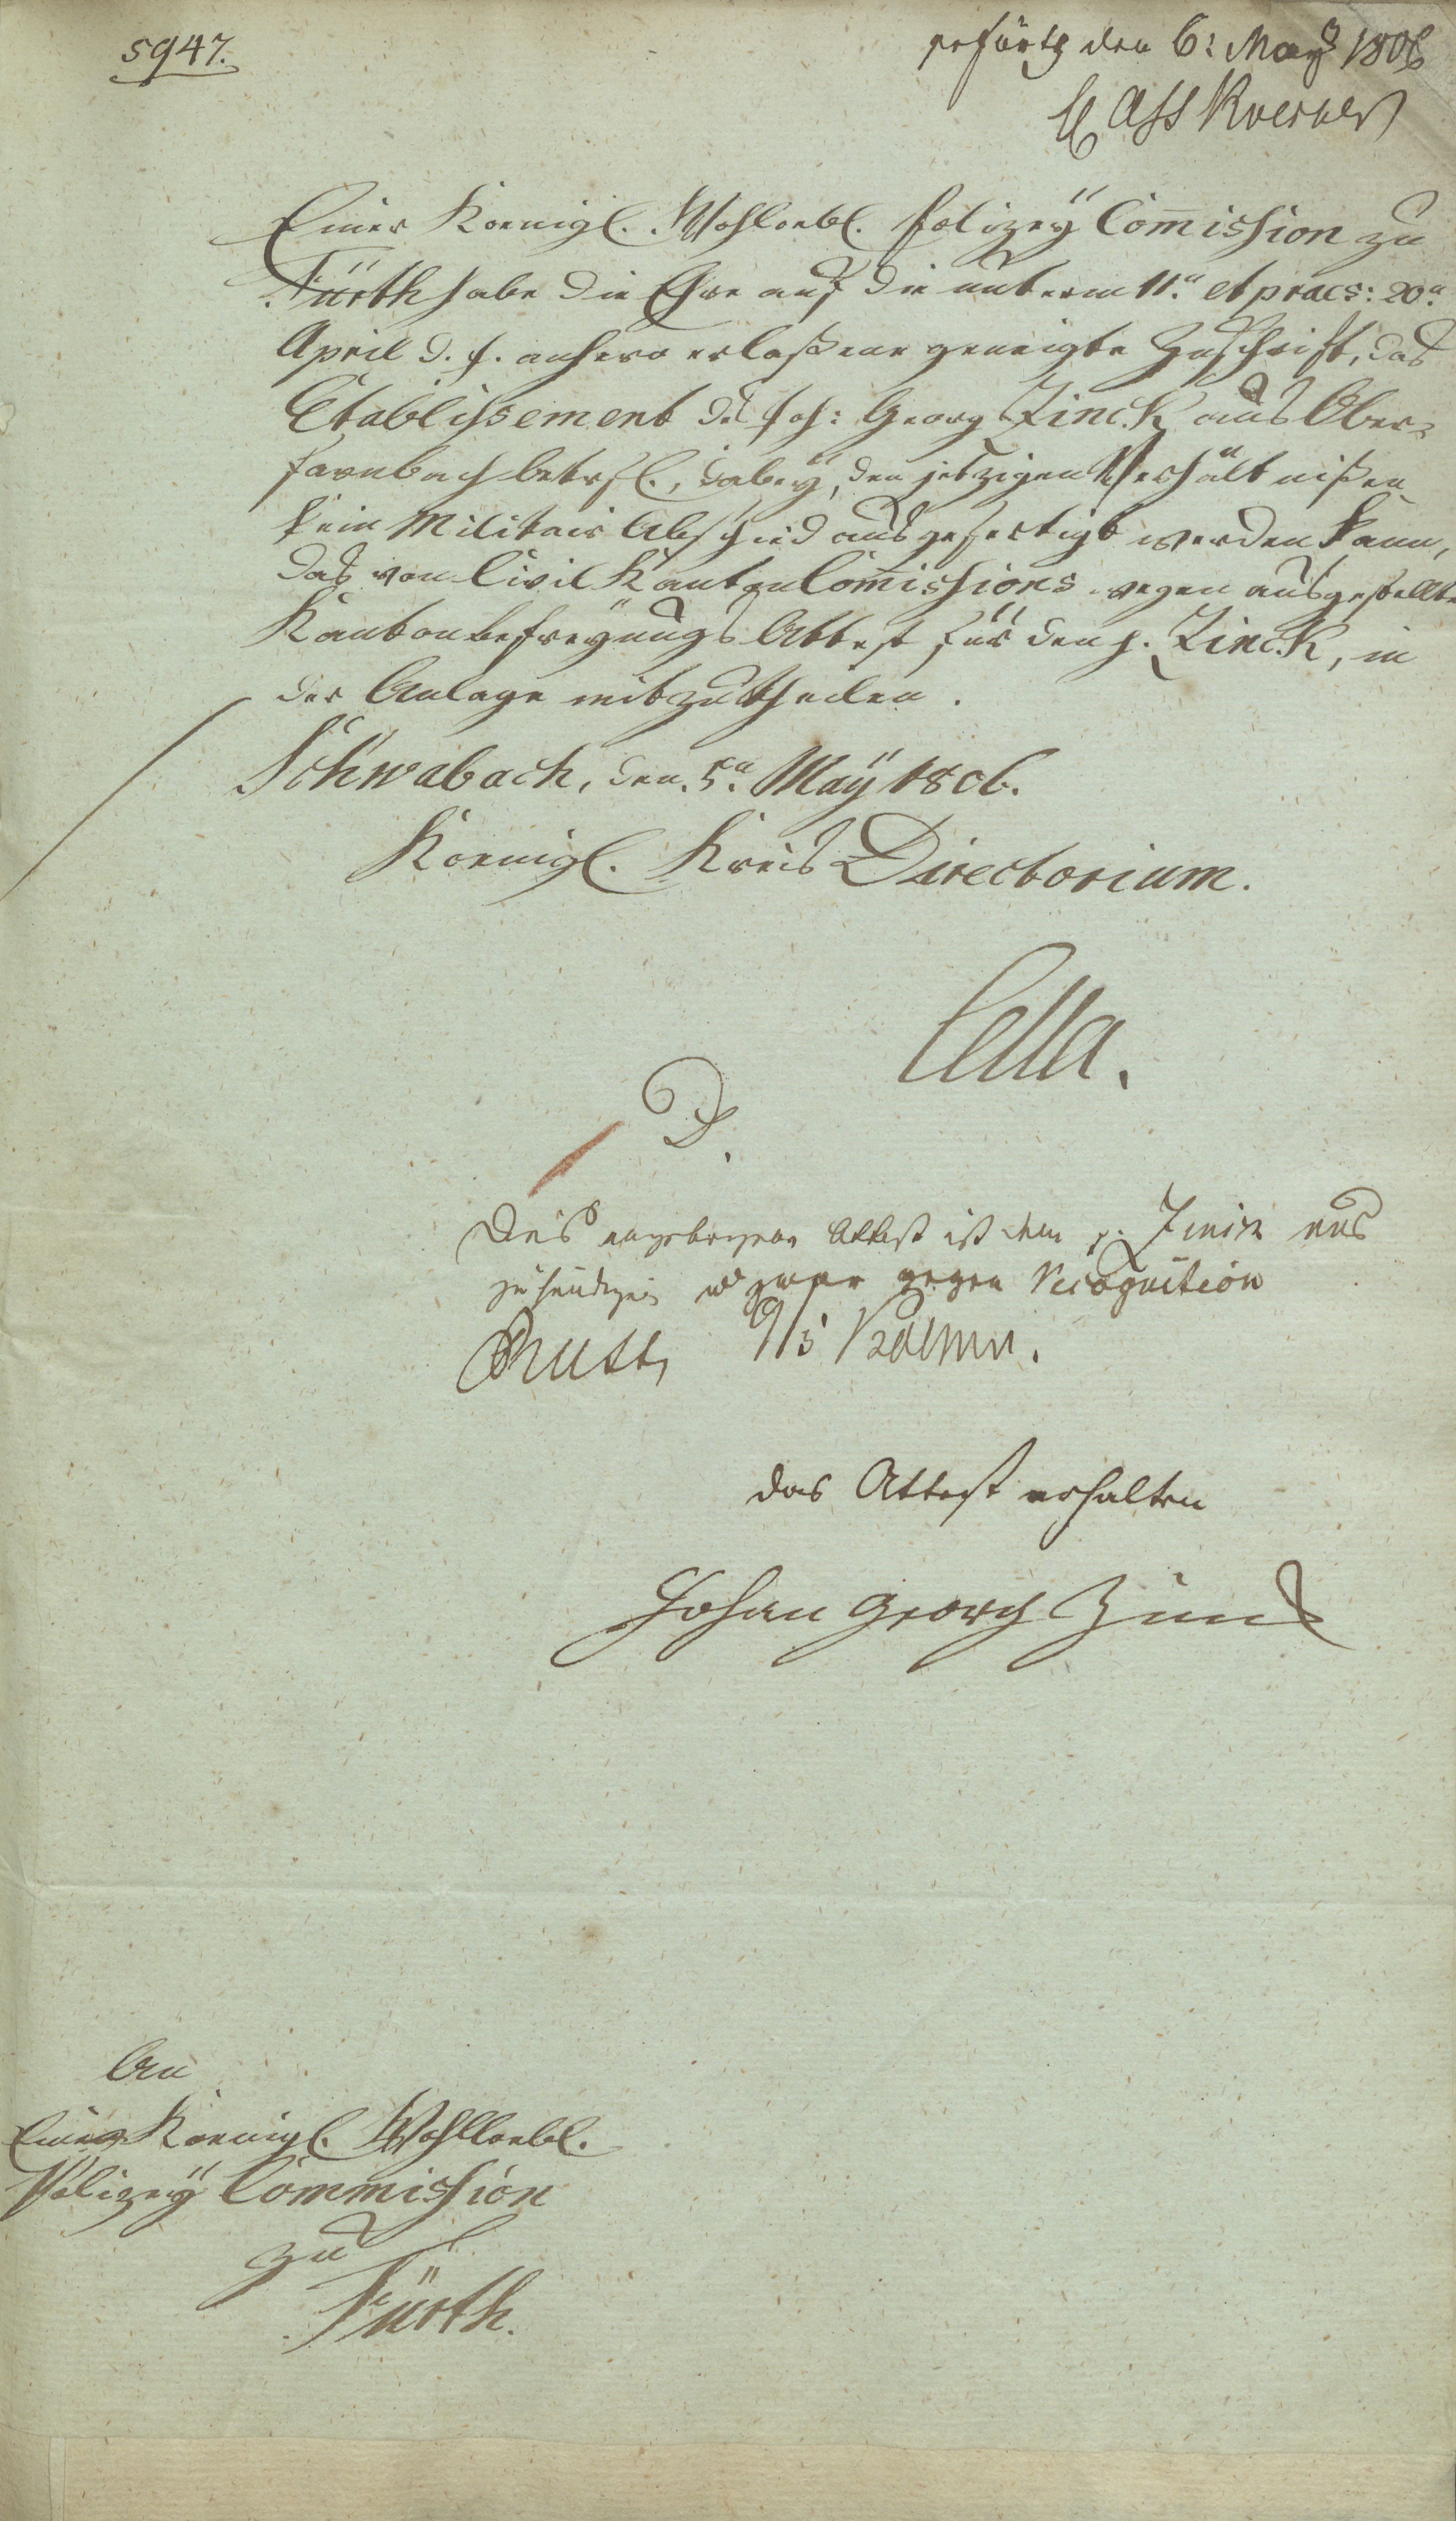 5947.
pr Fürth den 6: May 1806
Ass
Einer Koenigl. Wohlloebl. Polizeÿ Com̅ission zu
Fürth habe die Ehre auf die unterm 11.n et praes: 20n
April d. J. anhero erlaßene geneigte Zuschrift, das
Etablissement des Joh: Georg Zinck aus Ober-
farnbach betrfl., da beÿ den jetzigen Verhältnißen
kein Militair Abschied ausgefertigt werden kann,
das von Civil Kanton Com̅issions wegen ausgestellte
Kantonbefreÿungs Attest für den p. Zinck, in
der Anlage mitzutheilen.
Schwabach, den 5n Maÿ 1806.
Koenigl. Kreis Directorium.
Cella.
D.
Das Attest ist dem p. Zinck aus
zuhändigen u zwar gegen Recognition
das Attest erhalten
Johan Georg Zinck
An
Eine Koenigl. Wohlloebl.
Polizeÿ Commission
zu
Fürth.